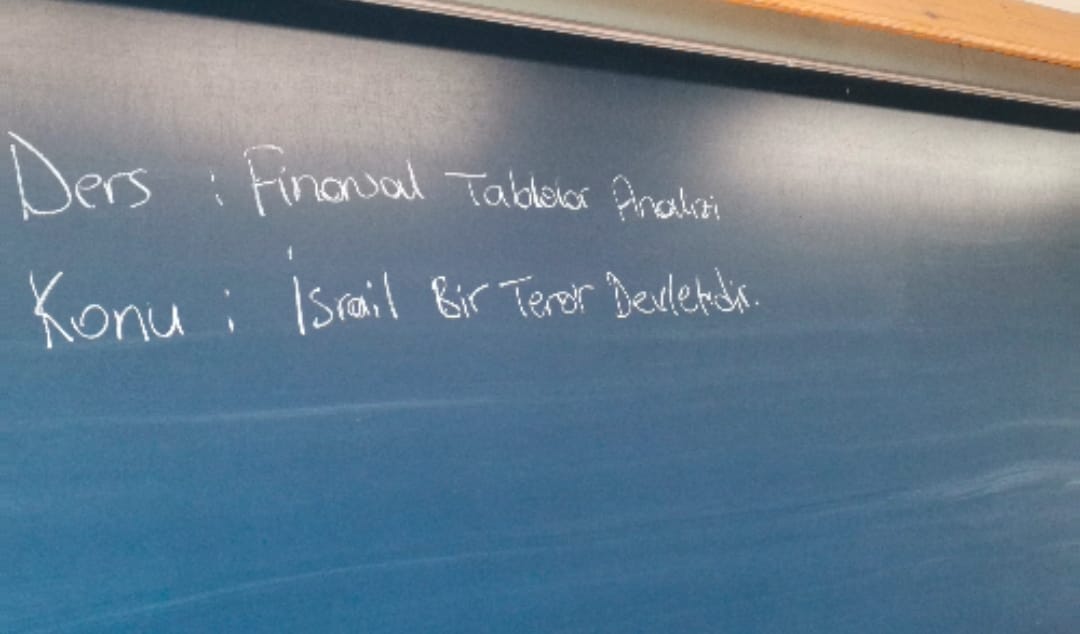 Ders : Finansal Tablolar Analizi
Konu : İsrail Bir Terör Devletidir.